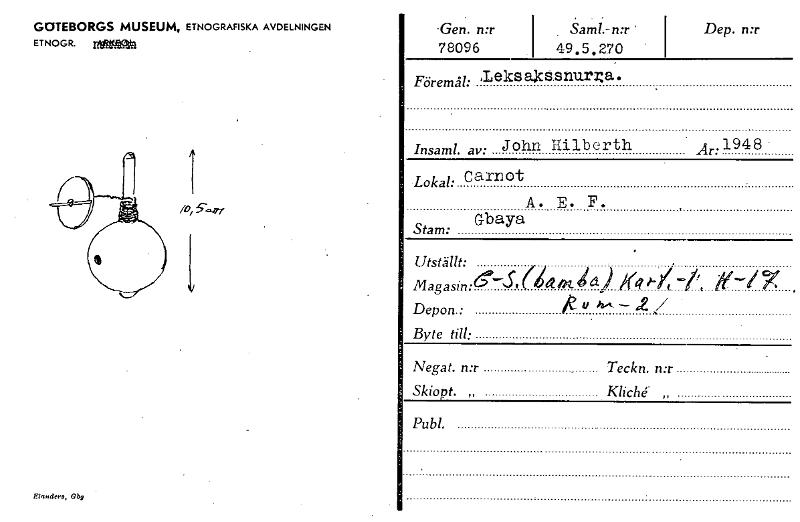 GÖTEBORGS MUSEUM, ETNOGRAFISKA AVDELNINGEN
ETNOGR.
10,5 cm
Elanders, Gbg
Gen. n:r Saml.-n:r Dep. n:r
78096 49.5.270
Föremål: Leksakssnurra.
Insaml. av: John Hilberth År: 1948
Lokal: Carnot
A. E. F.
Stam: Gbaya
Utställt:
Magasin: G-S.(bamba) Kart.-1. H-17.
Depon.: Rum-21
Byte till:
Negat. n:r Teckn. n:r
Skiopt. „ Kliché „
Publ.